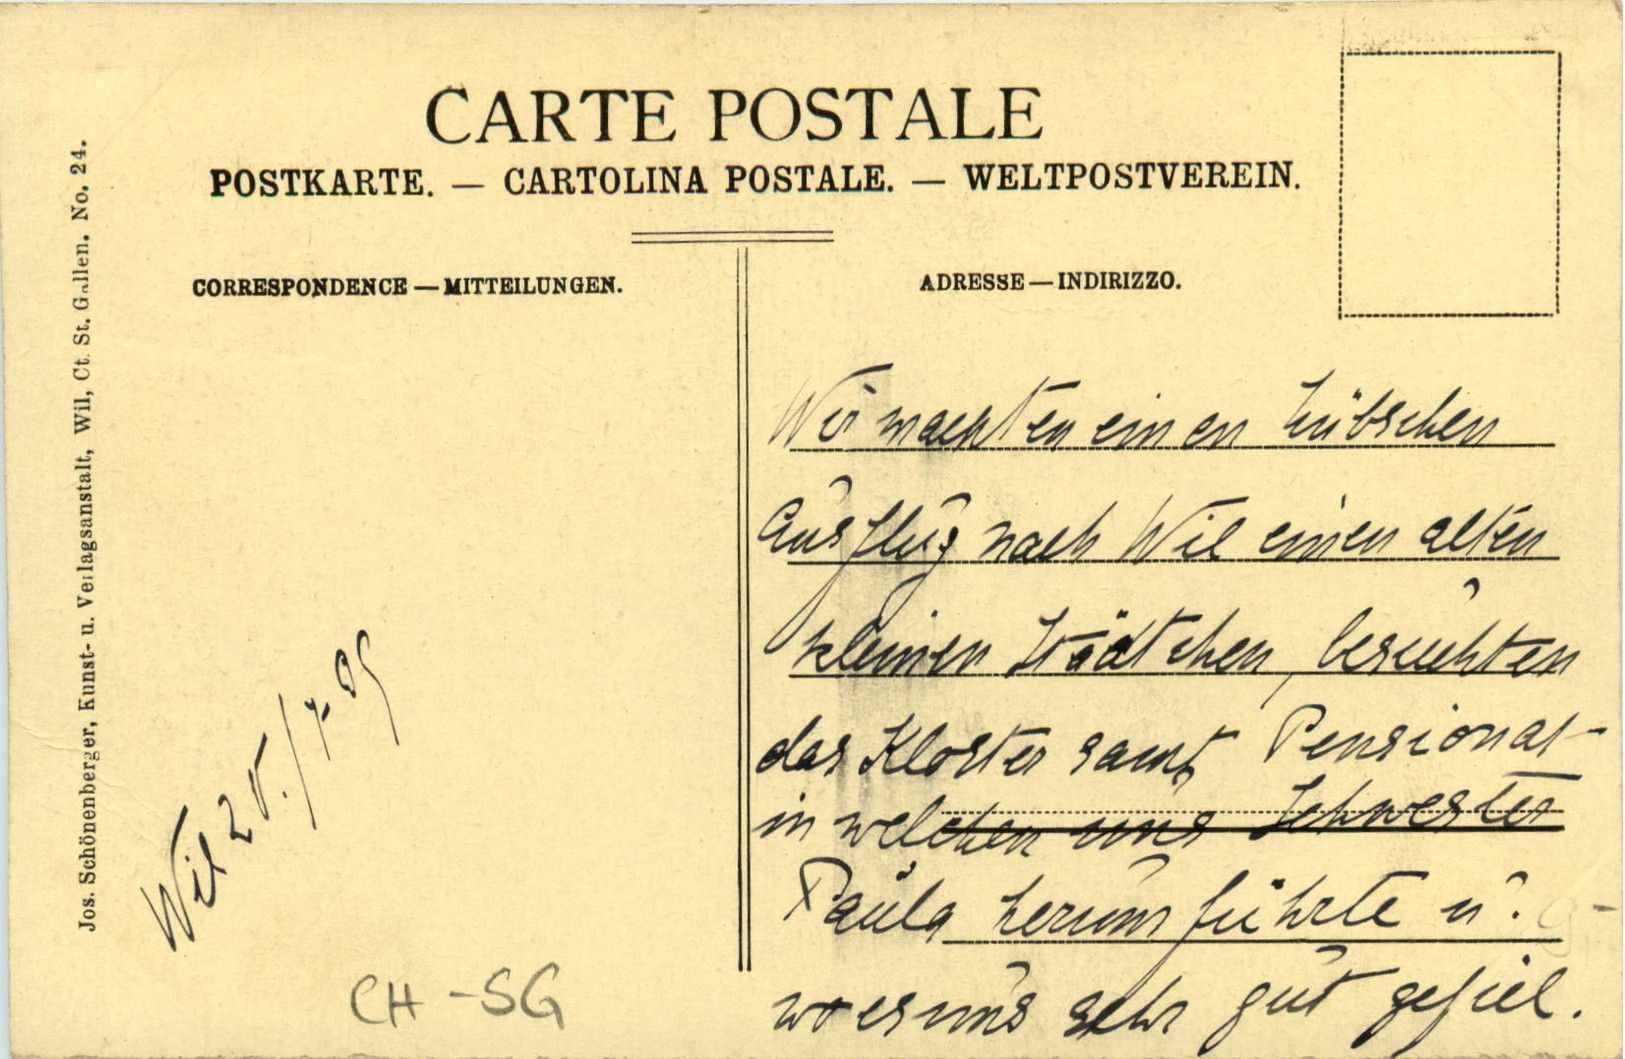 CARTE POSTALE
POSTKARTE. — CARTOLINA POSTALE. — WELTPOSTVEREIN.
CORRESPONDENCE — MITTEILUNGEN.
ADRESSE — INDIRIZZO.
Jos. Schönenberger, Kunst- u. Verlagsanstalt, Wil, Ct. St. Gallen. No. 24.
Wir machten einen hübschen
Ausflug nach Wil einen alten
kleinen Städtchen, besuchten
das Kloster samt Pensionat
in welchen uns Schwester
Paula herum führte u.
wo es uns sehr gut gefiel.
Wil 25./7. 09
CH-SG